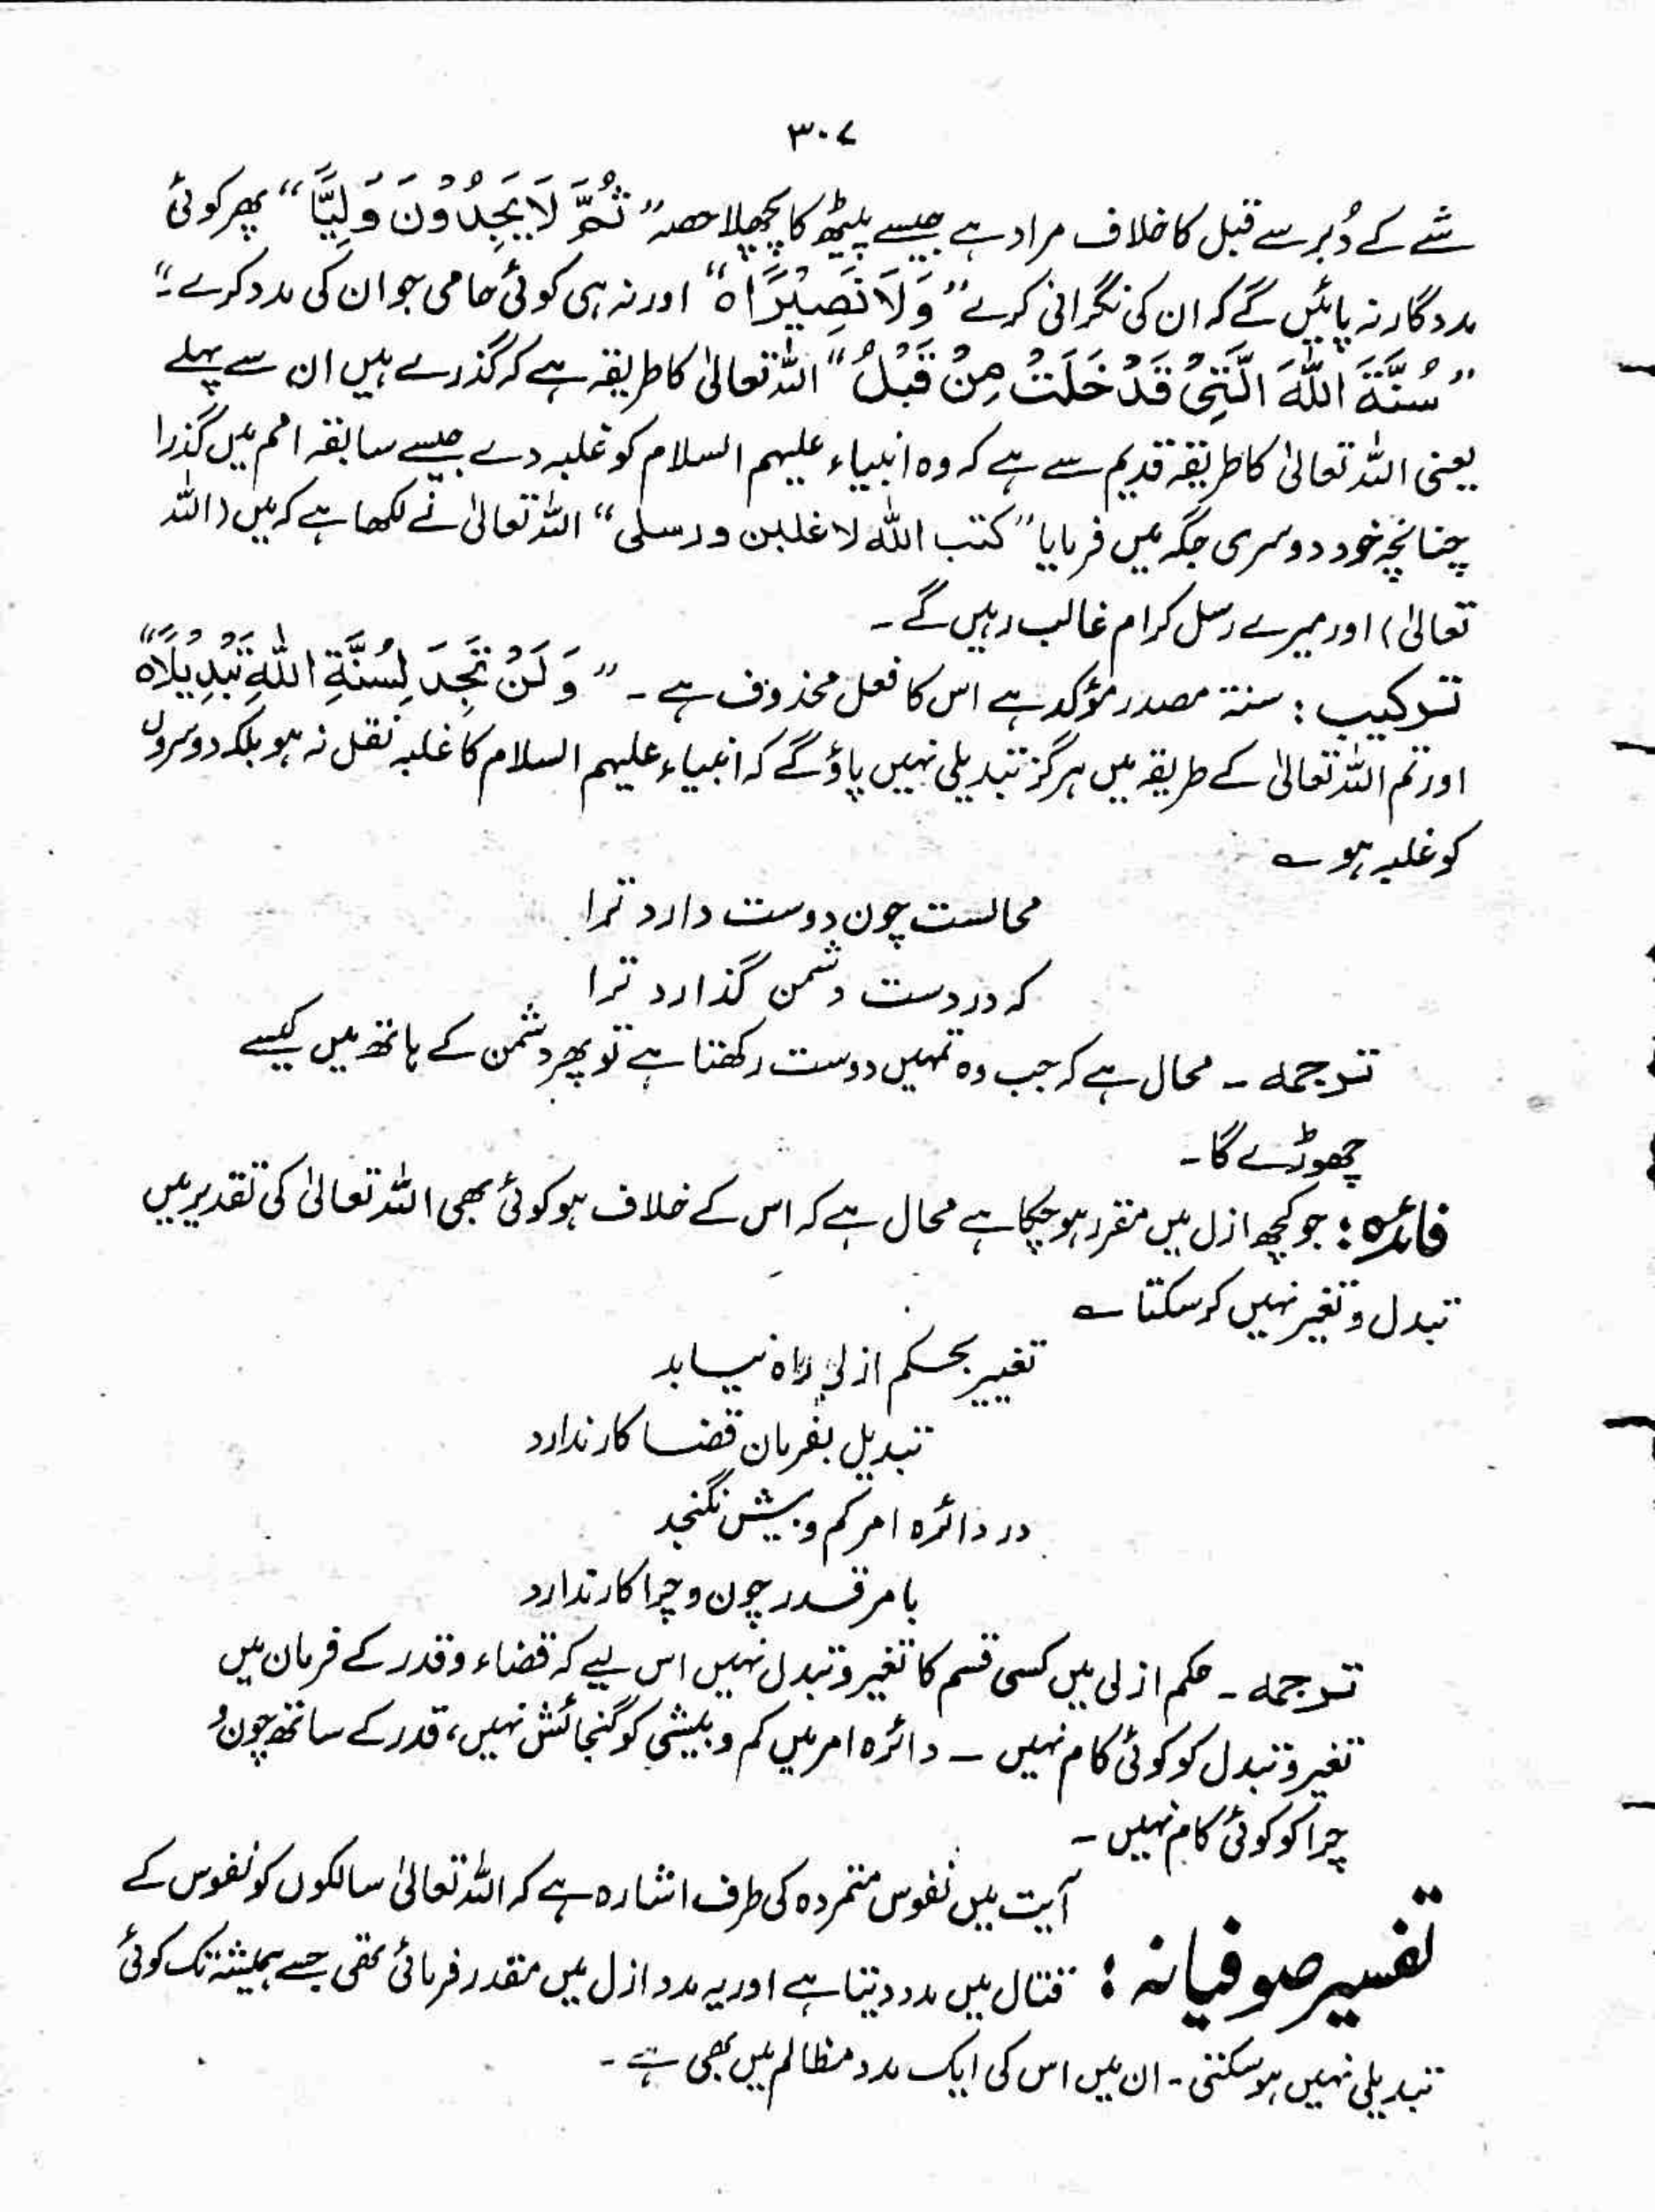 ۳۰۷
شے کے دُبر سے قبل کا خلاف مراد ہے جیسے پیٹھ کا پچھلا حصہ ”ثُمَّ لَا یَجِدُوْنَ وَلِیًّا“ پھر کوئی
مددگار نہ پائیں گے کہ ان کی نگرانی کرے ”وَلَا نَصِیْرًاہ“ اور نہ ہی کوئی حامی جو ان کی مدد کرے۔“
”سُنَّةَ اللّٰہَ الَّتِیْ قَدْ خَلَتْ مِنْ قَبْلُ“ اللہ تعالیٰ کا طریقہ ہے کہ گذرے ہیں ان سے پہلے
یعنی اللہ تعالیٰ کا طریقہ قدیم سے ہے کہ وہ انبیاء علیہم السلام کو غلبہ دے جیسے سابقہ امم میں گذرا
چنانچہ خود دوسری جگہ میں فرمایا ”کتب اللہ لا غلبن ورسلی“ اللہ تعالیٰ نے لکھا ہے کہ میں (اللہ
تعالیٰ) اور میرے رسل کرام غالب رہیں گے۔
ترکیب : سنۃ مصدر مؤکد ہے اس کا فعل محذوف ہے۔ ”وَلَنْ تَجِدَ لِسُنَّةِ اللّٰہِ تَبْدِیْلًاہ“
اور تم اللہ تعالیٰ کے طریقہ میں ہرگز تبدیلی نہیں پاؤ گے کہ انبیاء علیہم السلام کا غلبہ نقل نہ ہو بلکہ دوسروں
کو غلبہ ہو ؎
محالست چون دوست دارد ترا
کہ در دست دشمن گذارد ترا
ترجمہ ۔ محال ہے کہ جب وہ تمہیں دوست رکھتا ہے تو پھر دشمن کے ہاتھ میں کیسے
چھوڑے گا۔
فائدہ : جو کچھ ازل میں مقرر ہو چکا ہے محال ہے کہ اس کے خلاف ہو کوئی بھی اللہ تعالیٰ کی تقدیر میں
تبدل و تغیر نہیں کر سکتا ؎
تغییر بحکم ازلی راہ نیابد
تبدیل بفرمان قضا کار ندارد
در دائرہ امر کم و بیش نگنجد
با مر قدر چون و چرا کار ندارد
ترجمہ ۔ حکم ازلی میں کسی قسم کا تغیر و تبدل نہیں اس لیے کہ قضاء و قدر کے فرمان میں
تغیر و تبدل کو کوئی کام نہیں ۔ دائرہ امر میں کم و بیشی کو گنجائش نہیں، قدر کے ساتھ چون و
چرا کو کوئی کام نہیں ۔
آیت میں نفوس متمردہ کی طرف اشارہ ہے کہ اللہ تعالیٰ سالکوں کو نفوس کے
تفسیر صوفیانہ : قتال میں مدد دیتا ہے اور یہ مدد ازل میں مقدر فرمائی تھی جسے ہمیشہ تک کوئی
تبدیلی نہیں ہو سکتی۔ ان میں اس کی ایک مدد مظالم میں بھی ہے۔